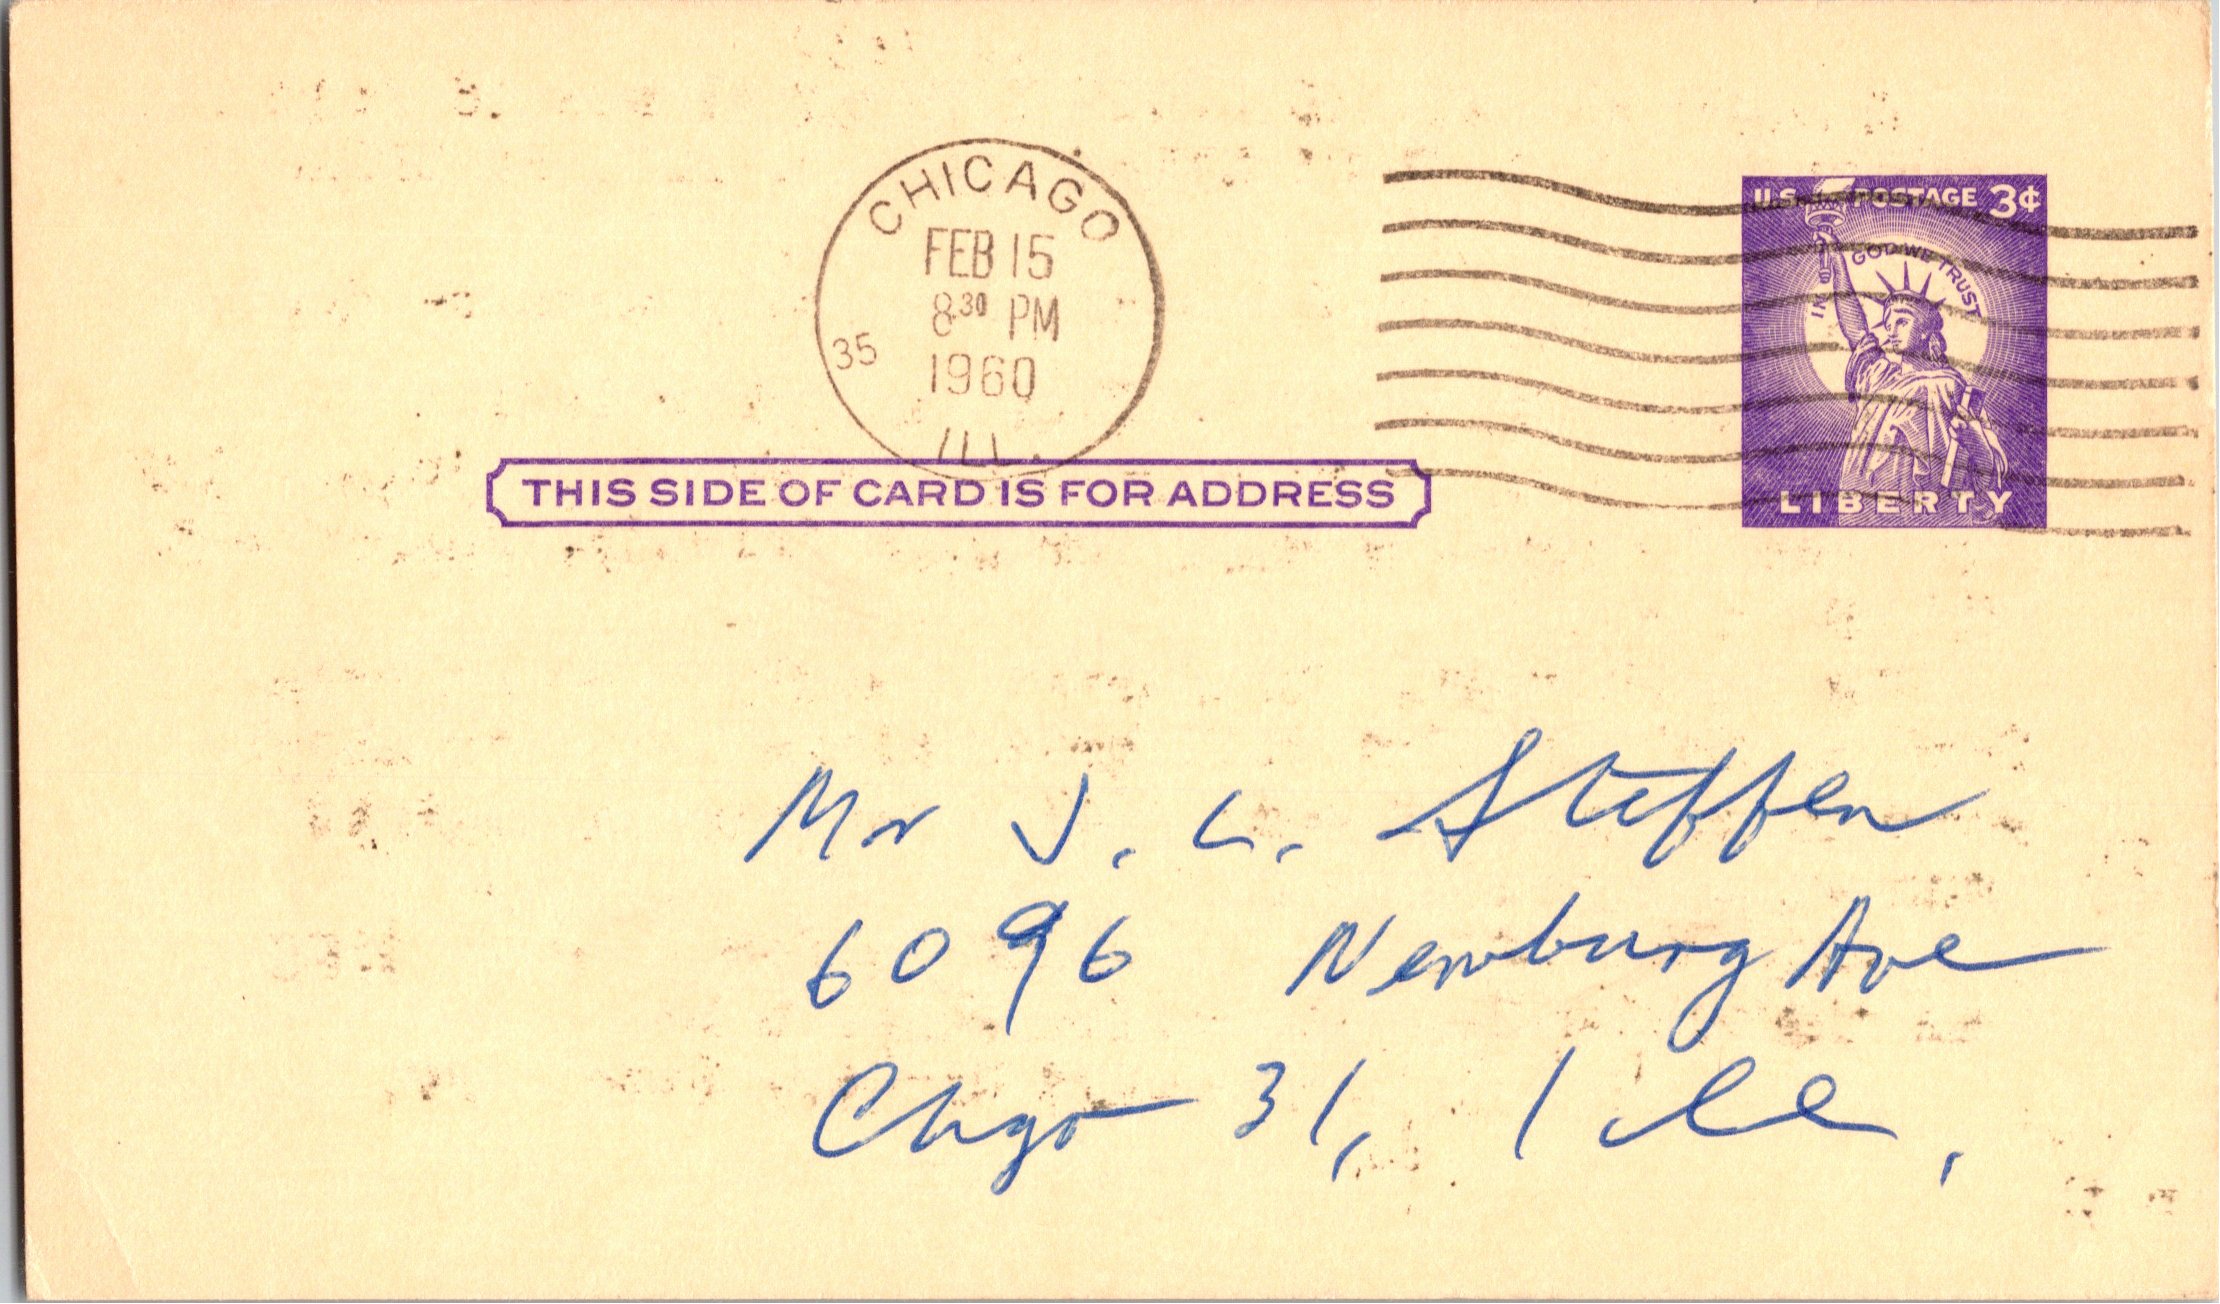 CHICAGO
FEB 15
8 30 PM
1960
35
ILL.
U.S. POSTAGE 3¢
IN GOD WE TRUST
LIBERTY
THIS SIDE OF CARD IS FOR ADDRESS
Mr J. L. Steffen
6096 Newburg Ave
Chgo 31, Ill.